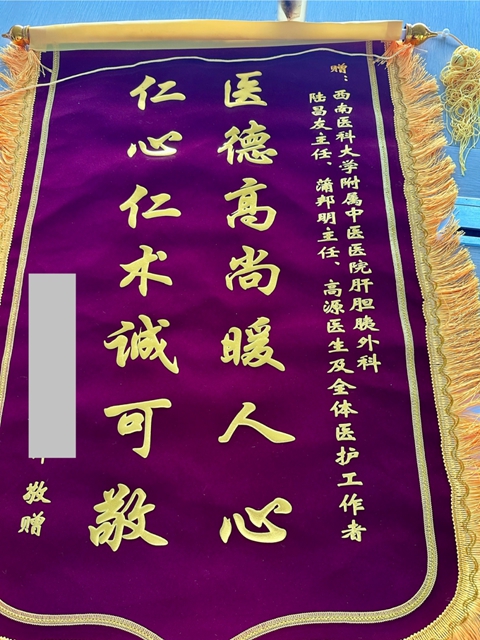 赠：西南医科大学附属中医医院肝胆胰外科
陆昌友主任、蒲邦明主任、高源医生及全体医护工作者
医德高尚暖人心
仁心仁术诚可敬
敬赠